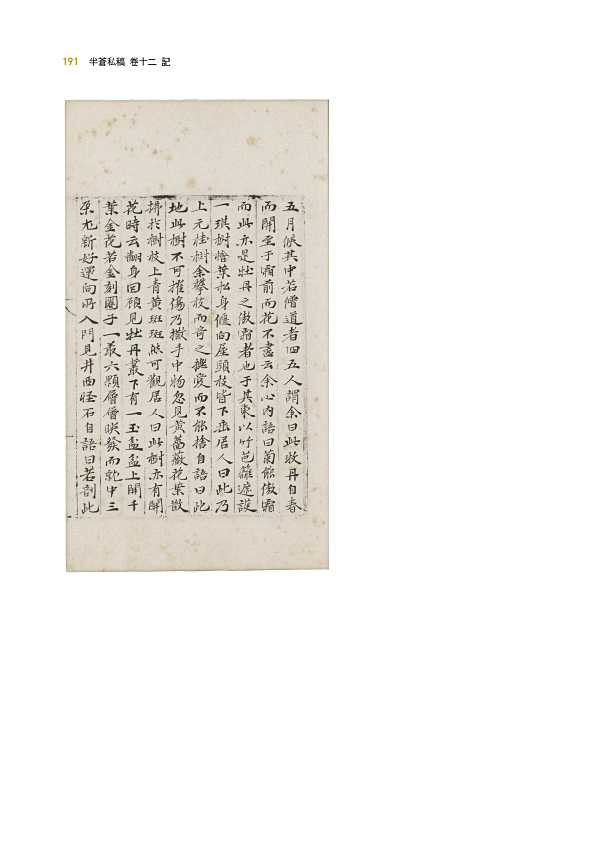 191 半蒼私稿 卷十二 記
五月候其中若僧道者四五人謂余曰此牧丹自春
而開至于霜前而花不盡云余心內語曰菊能傲霜
而此亦是牡丹之傲霜者也于其東以竹笆籬遮護
一琪樹檜葉松身偃向屋頭枝皆下垂居人曰此乃
上元桂樹余攀枝而奇之撫愛而不能捨自語曰此
地此樹不可摧傷乃撒手中物忽見黃薔薇花葉散
掛於樹枝上青黃斑斑然可觀居人曰此樹亦有開
花時云翻身回顧見牡丹叢下有一玉盆盆上開千
葉金花若金刻團子一叢六顆層層暎發而就中三
朶尤新好還向所入門見井西怪石自語曰若剖此